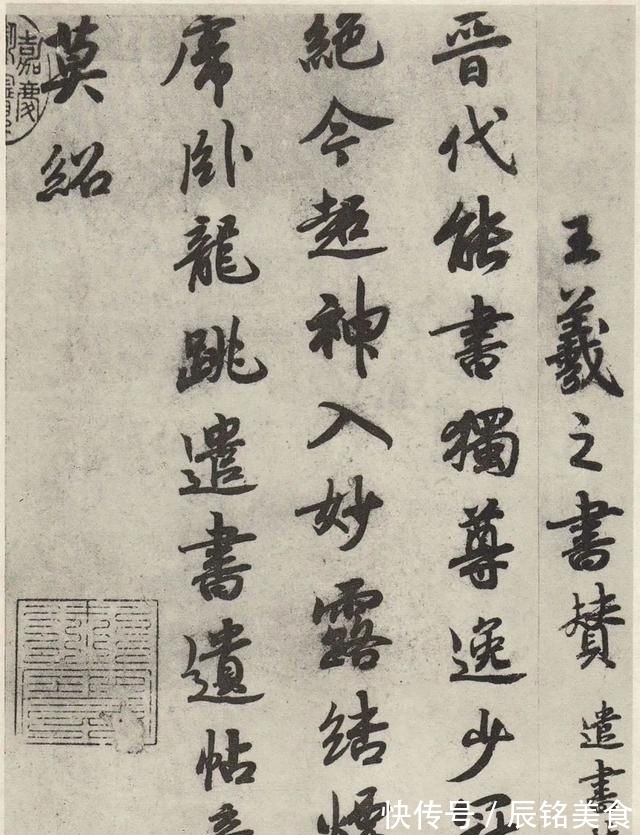 王羲之書贊 遣書
晉代能書獨尊逸少
絕今超神入妙露結煙
虎卧龍跳遣書遺帖
莫紹
嘉慶
快传号 / 辰铭美食